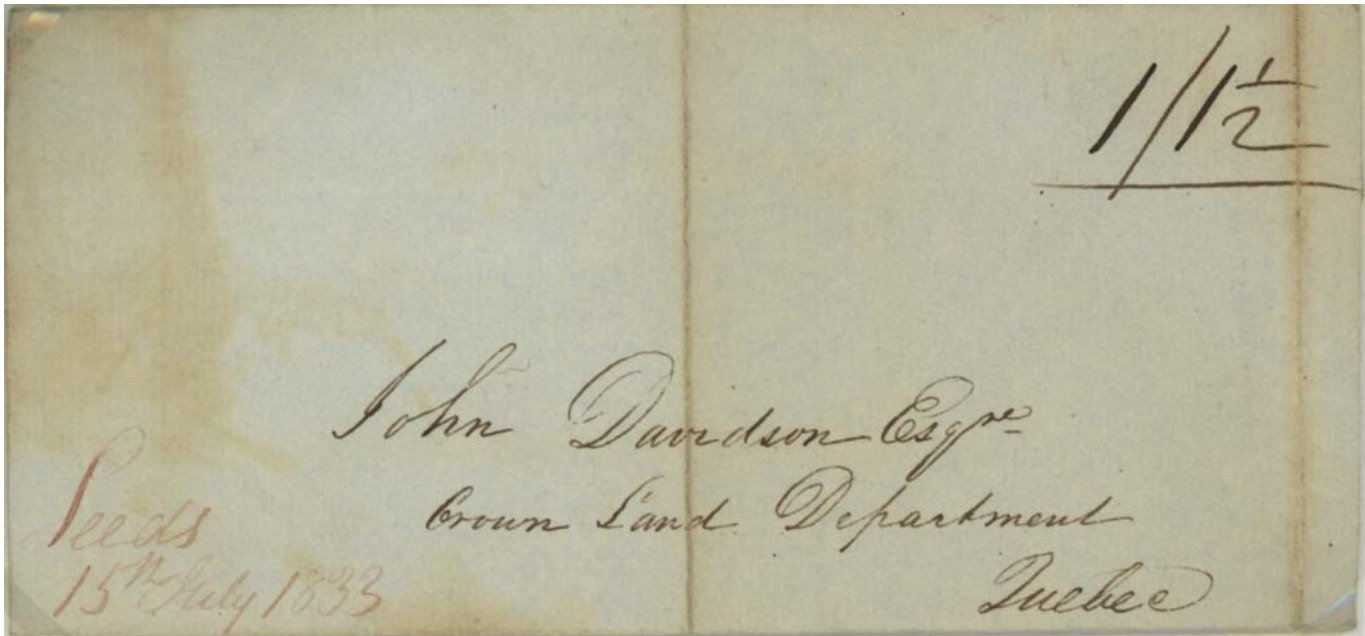 1/1½
John Davidson Esqre
Crown Land Department
Quebec
Leeds
15th July 1833